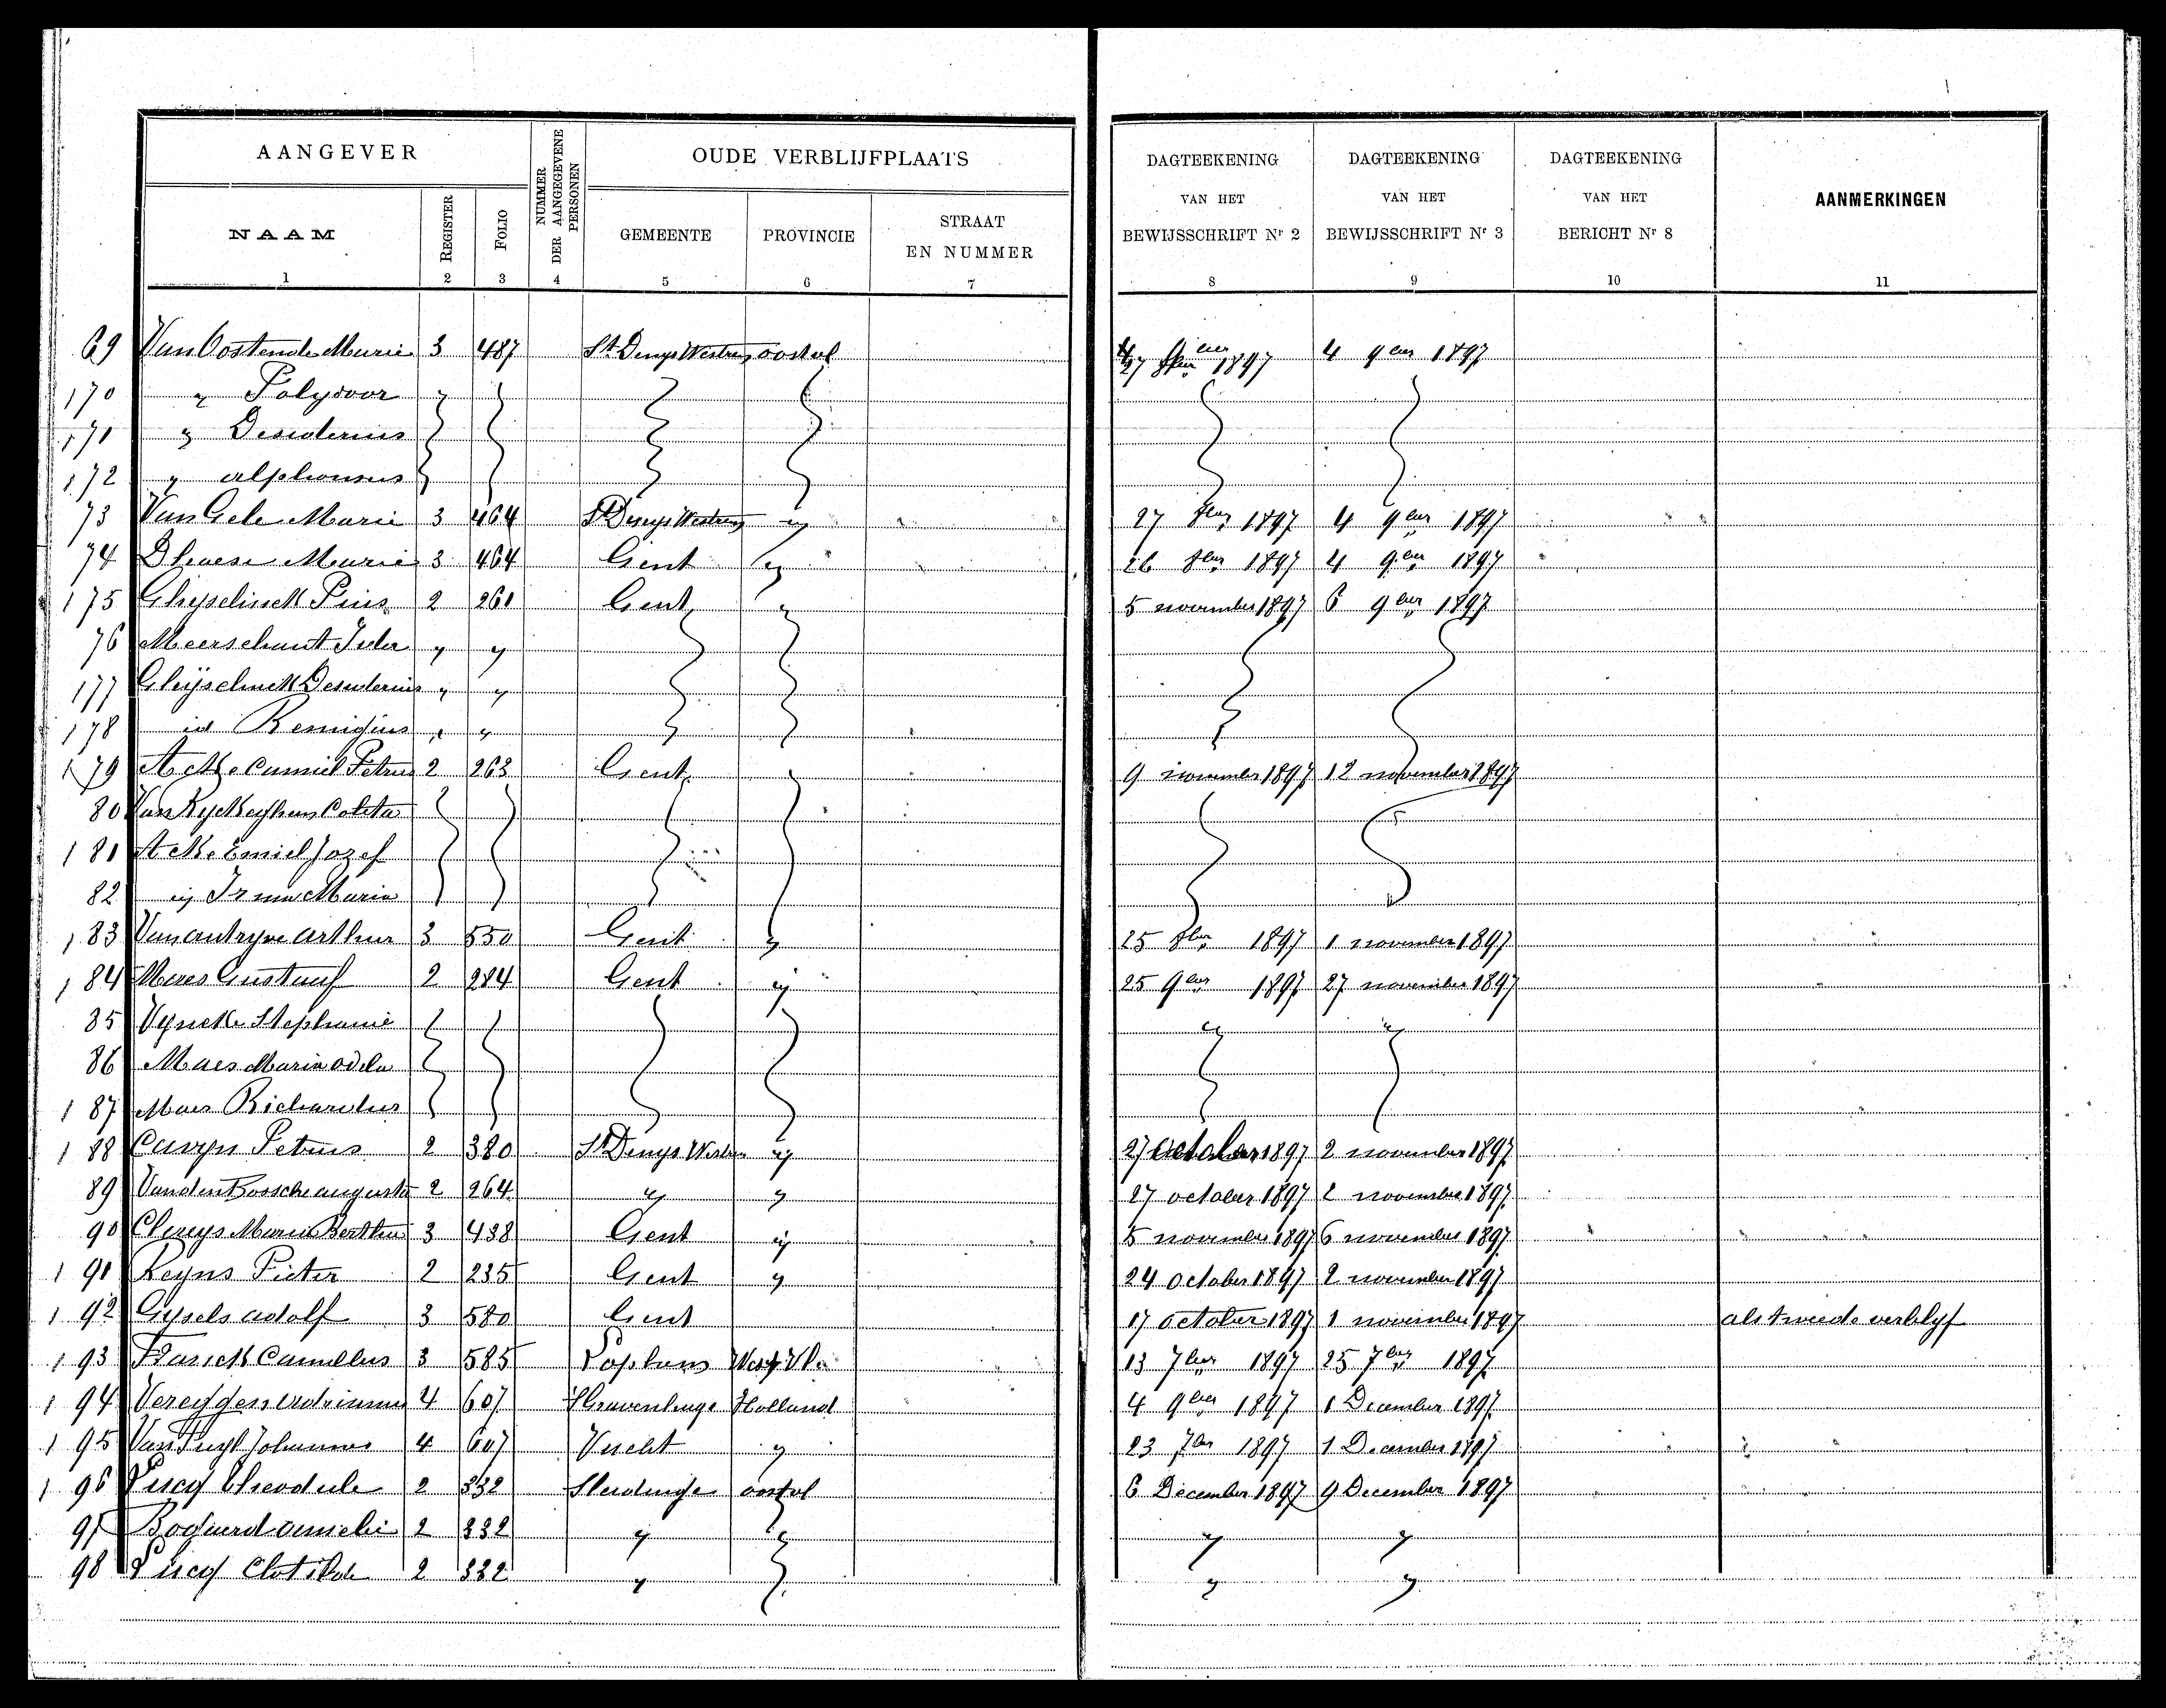 AANGEVER
NUMMER DER AANGEGEVENE PERSONEN
OUDE VERBLIJFPLAATS
DAGTEEKENING VAN HET BEWIJSSCHRIFT Nr 2
DAGTEEKENING VAN HET BEWIJSSCHRIFT Nr 3
DAGTEEKENING VAN HET BERICHT Nr 8
AANMERKINGEN
NAAM REGISTER FOLIO GEMEENTE PROVINCIE STRAAT EN NUMMER
1 2 3 4 5 6 7 8 9 10 11
69 Van Oostende Marie 3 487 St Denys Westrem oostvl 27 1897 4 9ber 1897
170 " Polydoor "
171 " Desiderius
172 " alphonsus
73 Van Gele Marie 3 464 St Denys Westrem " 27 8ber 1897 4 9ber 1897
74 Marie 3 464 Gent " 26 8ber 1897 4 9ber 1897
175 Ghyselinck Pius 2 261 Gent " 5 november 1897 6 9ber 1897
76 Meerschaut " "
177 Ghijselinck Desiderius " "
178 id Remigius " "
179 Acke Camiel Petrus 2 263 Gent " 9 november 1897 12 november 1897
80 Van Ryckeghem Coleta
181 Acke Emiel Jozef
82 " Maria
183 Arthur 3 550 Gent " 25 8ber 1897 1 november 1897
184 Maes Gustaaf 2 284 Gent " 25 9ber 1897 27 november 1897
85 Vyncke Stephanie " "
86 Maes Maria Odela
187 Maes Richardus
188 Petrus 2 380 St Denys Westrem " 27 october 1897 2 november 1897
89 Vanden Bossche augusta 2 264 " " 27 october 1897 2 november 1897
90 Claeys Marie Bertha 3 438 Gent " 5 november 1897 6 november 1897
191 Keyns Pieter 2 235 Gent " 24 october 1897 2 november 1897
192 Gysels adolf 3 580 Gent 17 october 1897 1 november 1897 als tweede verblyf
193 Camillus 3 585 West Vl. 13 7ber 1897 25 7ber 1897
194 4 607 Holland 4 9ber 1897 1 December 1897
195 Johannes 4 607 Vucht " 23 7ber 1897 1 December 1897
196 Theodule 2 332 Sleidinge oostvl 6 December 1897 9 December 1897
97 Bogaerd 2 332 " " " "
98 Clotilde 2 332 " " "